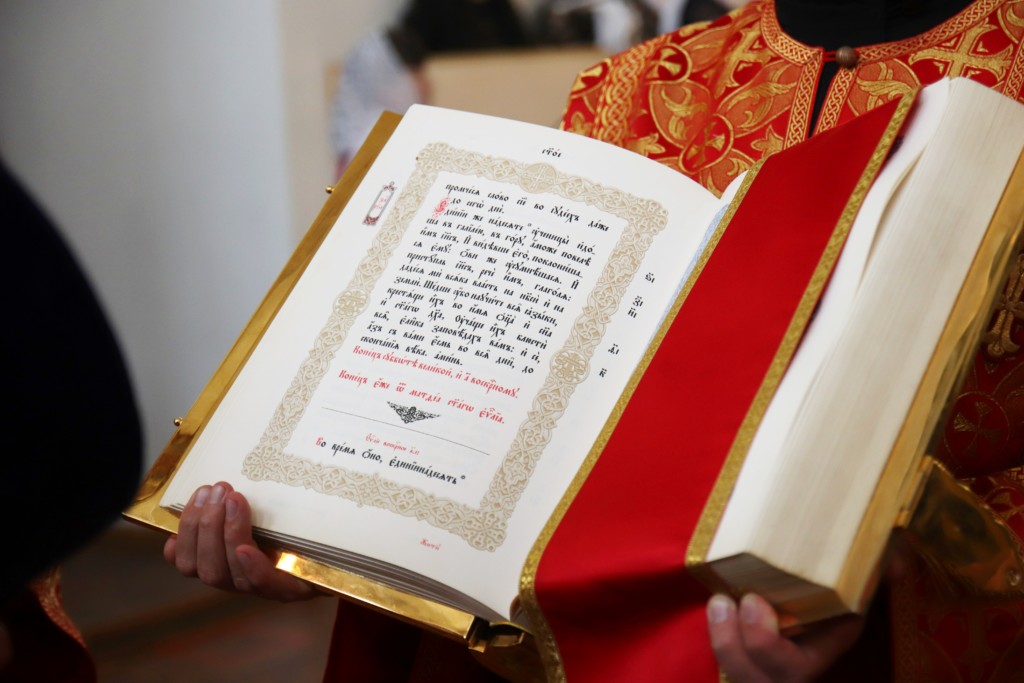 промчеся слово сїе во іудеехъ даже
до сегѡ дне.
Единїи же надесѧть ᲂу҆ченицы идо-
ша въ галїлею, въ гору, аможе повелѣ
имъ і҆и҃съ. И҆ видѣвше его, поклонишасѧ
ємꙋ: ѻви же ᲂу҆сꙋмнѣшасѧ. И҆
пристꙋпль і҆и҃съ, рече имъ, глаголѧ:
дадесѧ ми всѧка власть на нб҃си и на
земли. Шедше ᲂу҆бо наꙋчите всѧ ꙗзыки,
крестѧще ихъ во имѧ ѻц҃а и сн҃а
и ст҃агѡ дх҃а, Оу҆чаще ихъ блюсти
всѧ, єлика заповѣдахъ вамъ: и се,
азъ съ вами єсмь во всѧ дни, до
скончанїѧ вѣка. Аминь.
Конецъ сꙋбботѣ великой, и а҃ воскрⷭ҇номꙋ.
Конецъ єже ѿ матѳеа ст҃агѡ єѵⷢ҇лїа.
Во времѧ ѻно, єдинїинадесѧть